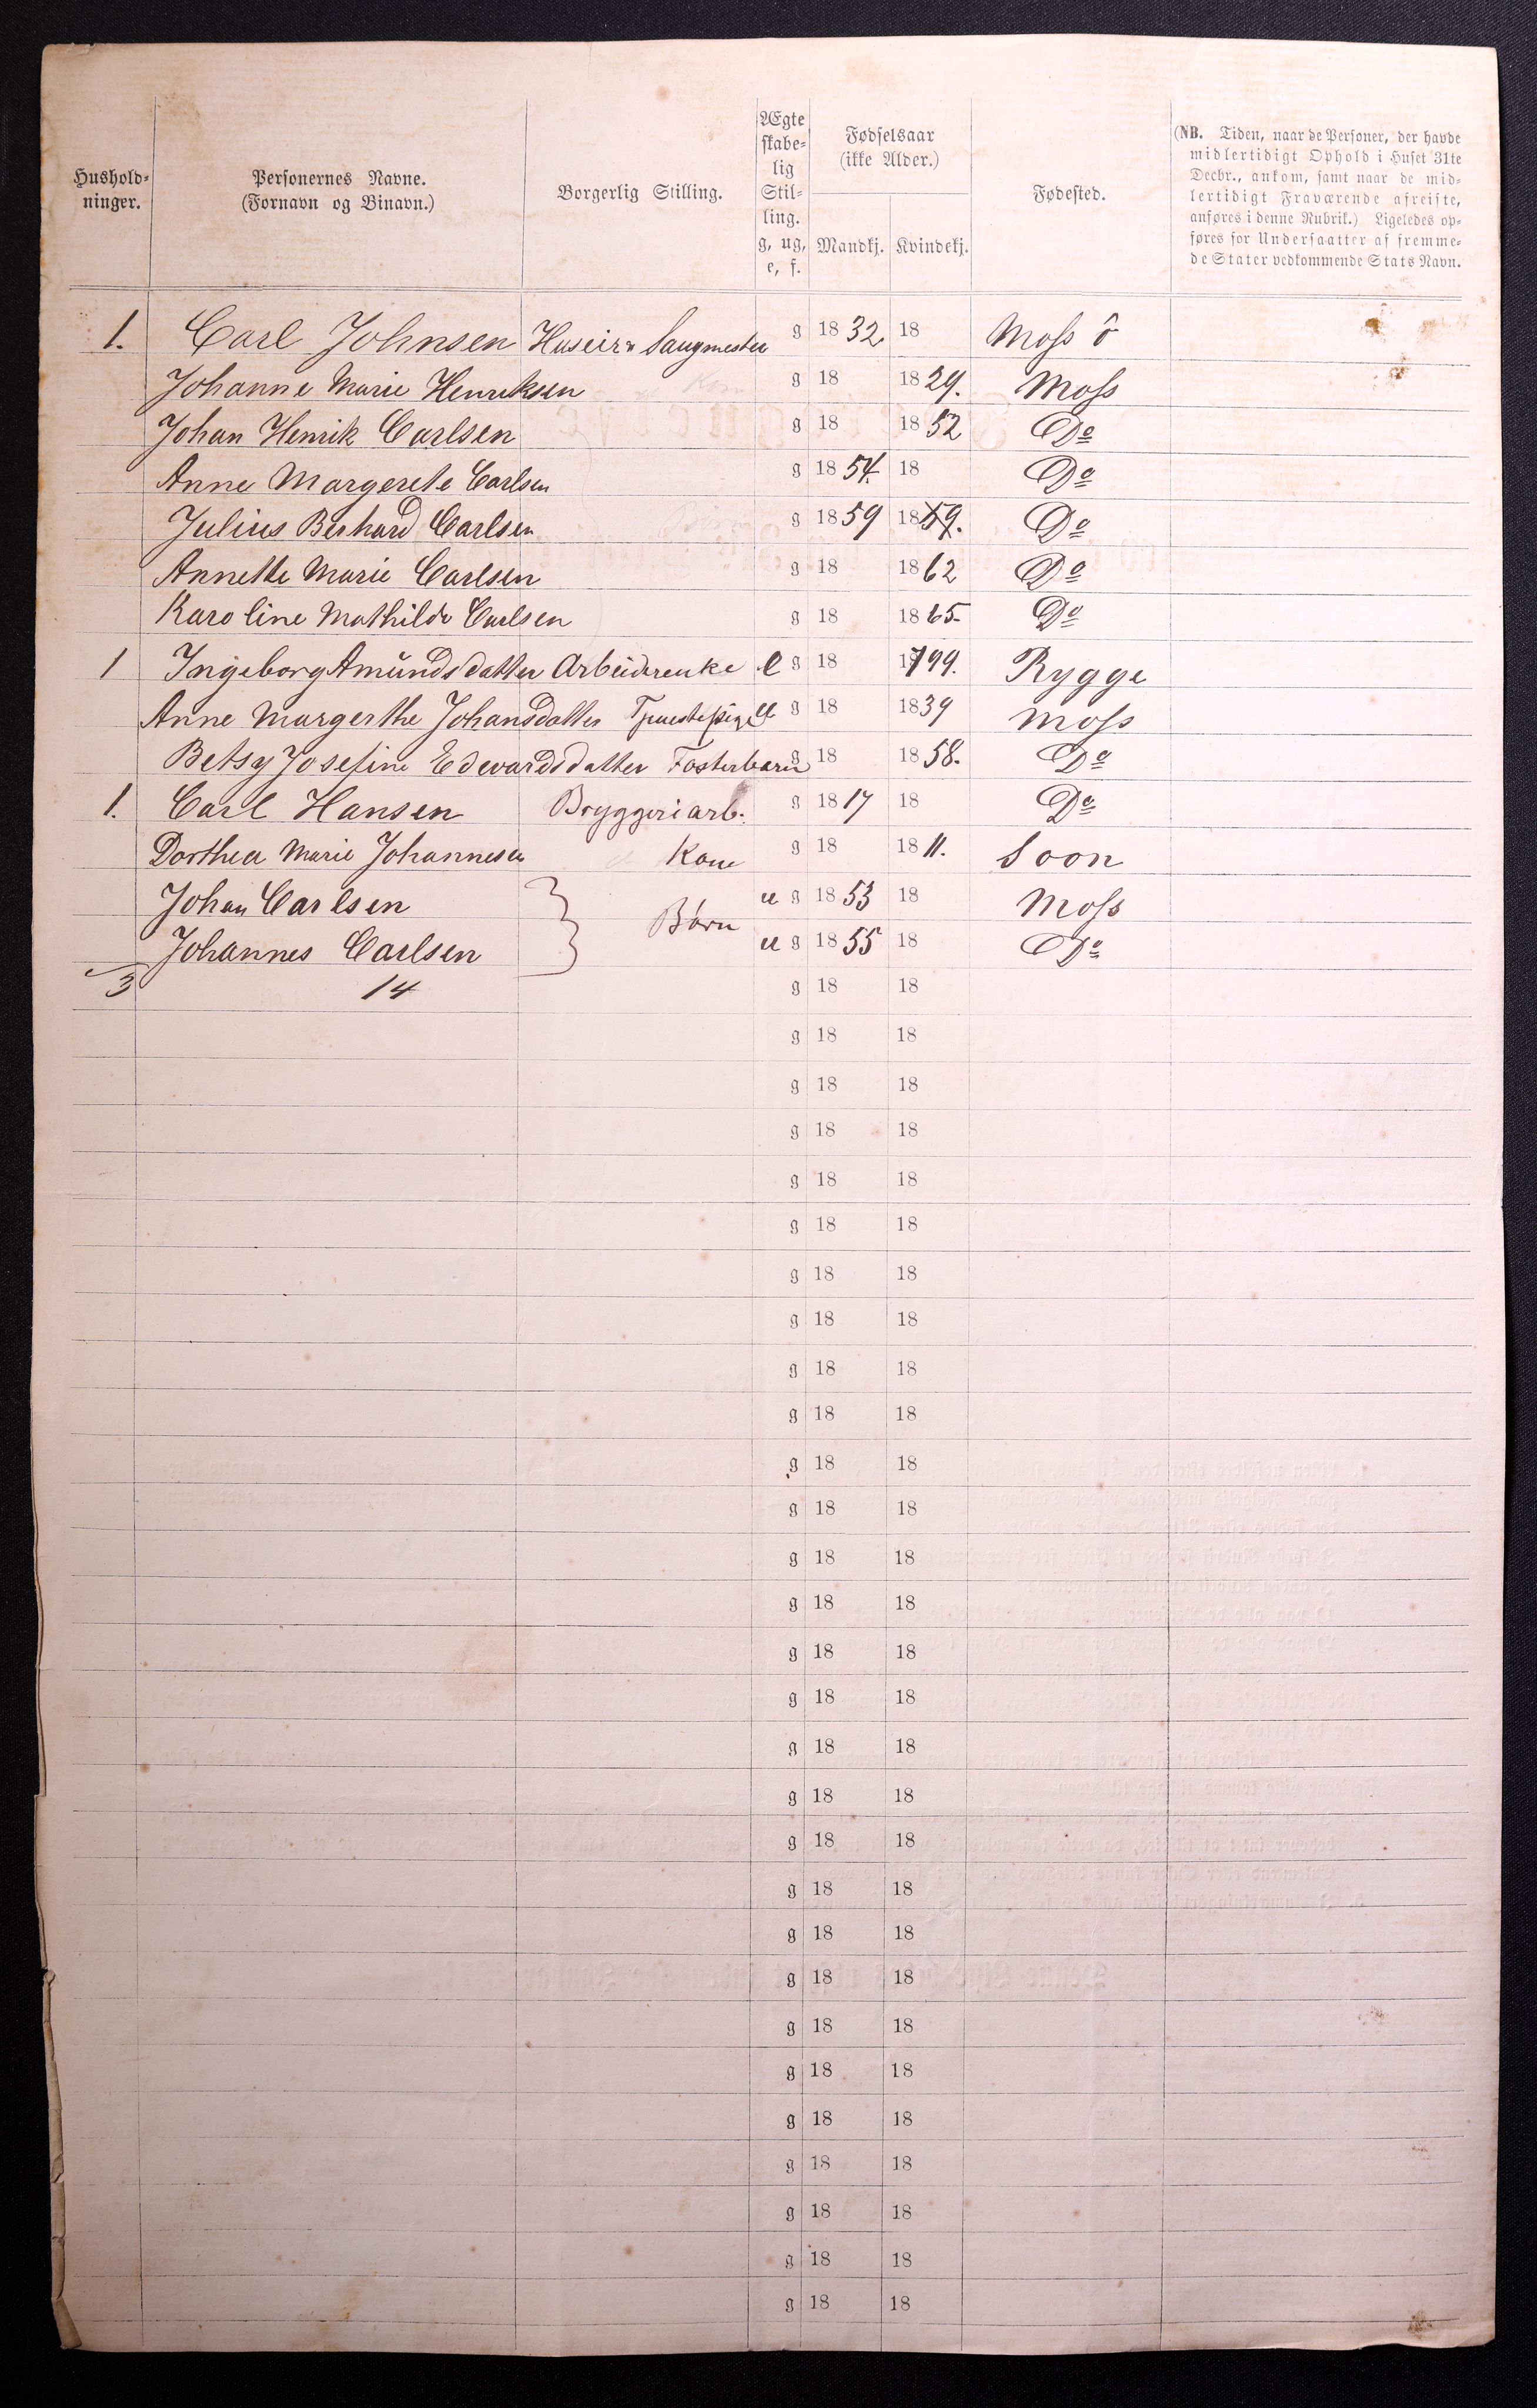 Hushold-
ninger.
Personernes Navne.
(Fornavn og Binavn.)
Borgerlig Stilling.
Ægte
skabe-
lig
Stil-
ling.
g, ug,
e, f.
Fødselsaar
(ikke Alder.)
Mandkj.
Kvindekj.
Fødested.
(NB. Tiden, naar de Personer, der havde
midlertidigt Ophold i Huset 31te
Decbr., ankom, samt naar de mid-
lertidigt Fraværende afreiste,
anføres i denne Rubrik.) Ligeledes op-
føres for Undersaatter af fremme-
de Stater vedkommende Stats Navn.
1. Carl Johnsen Huseir Saugmester g 1832 18 Moss ô
Johanne Marie Henriksen Kone g 18 1829. Moss
Johan Henrik Carlsen g 18 1852 Do
Anne Margerete Carlsen g 1854. 18 Do
Julius Berhard Carlsen Børn g 1859 1859. Do
Annette Marie Carlsen g 18 1862 Do
Karoline Mathilde Carlsen g 18 1865- Do
1 Ingeborg Amundsdatter Arbeiderenke e g 18 1799. Rygge
Anne Margerthe Johansdatter u g 18 1839 Moss
Betsy Josefine Edwardsdatter Fosterbarn g 18 1858. Do
1. Carl Hansen Bryggeriarb. g 1817 18 Do
Dorthea Marie Johannesen Kone g 18 1811. Soon
Johan Carlsen } u g 1853 18 Moss
Børn
Johannes Carlsen u g 1855 18 Do
3 14 g 18 18
g 18 18
g 18 18
g 18 18
g 18 18
g 18 18
g 18 18
g 18 18
g 18 18
g 18 18
g 18 18
g 18 18
g 18 18
g 18 18
g 18 18
g 18 18
g 18 18
g 18 18
g 18 18
g 18 18
g 18 18
g 18 18
g 18 18
g 18 18
g 18 18
g 18 18
g 18 18
g 18 18
g 18 18